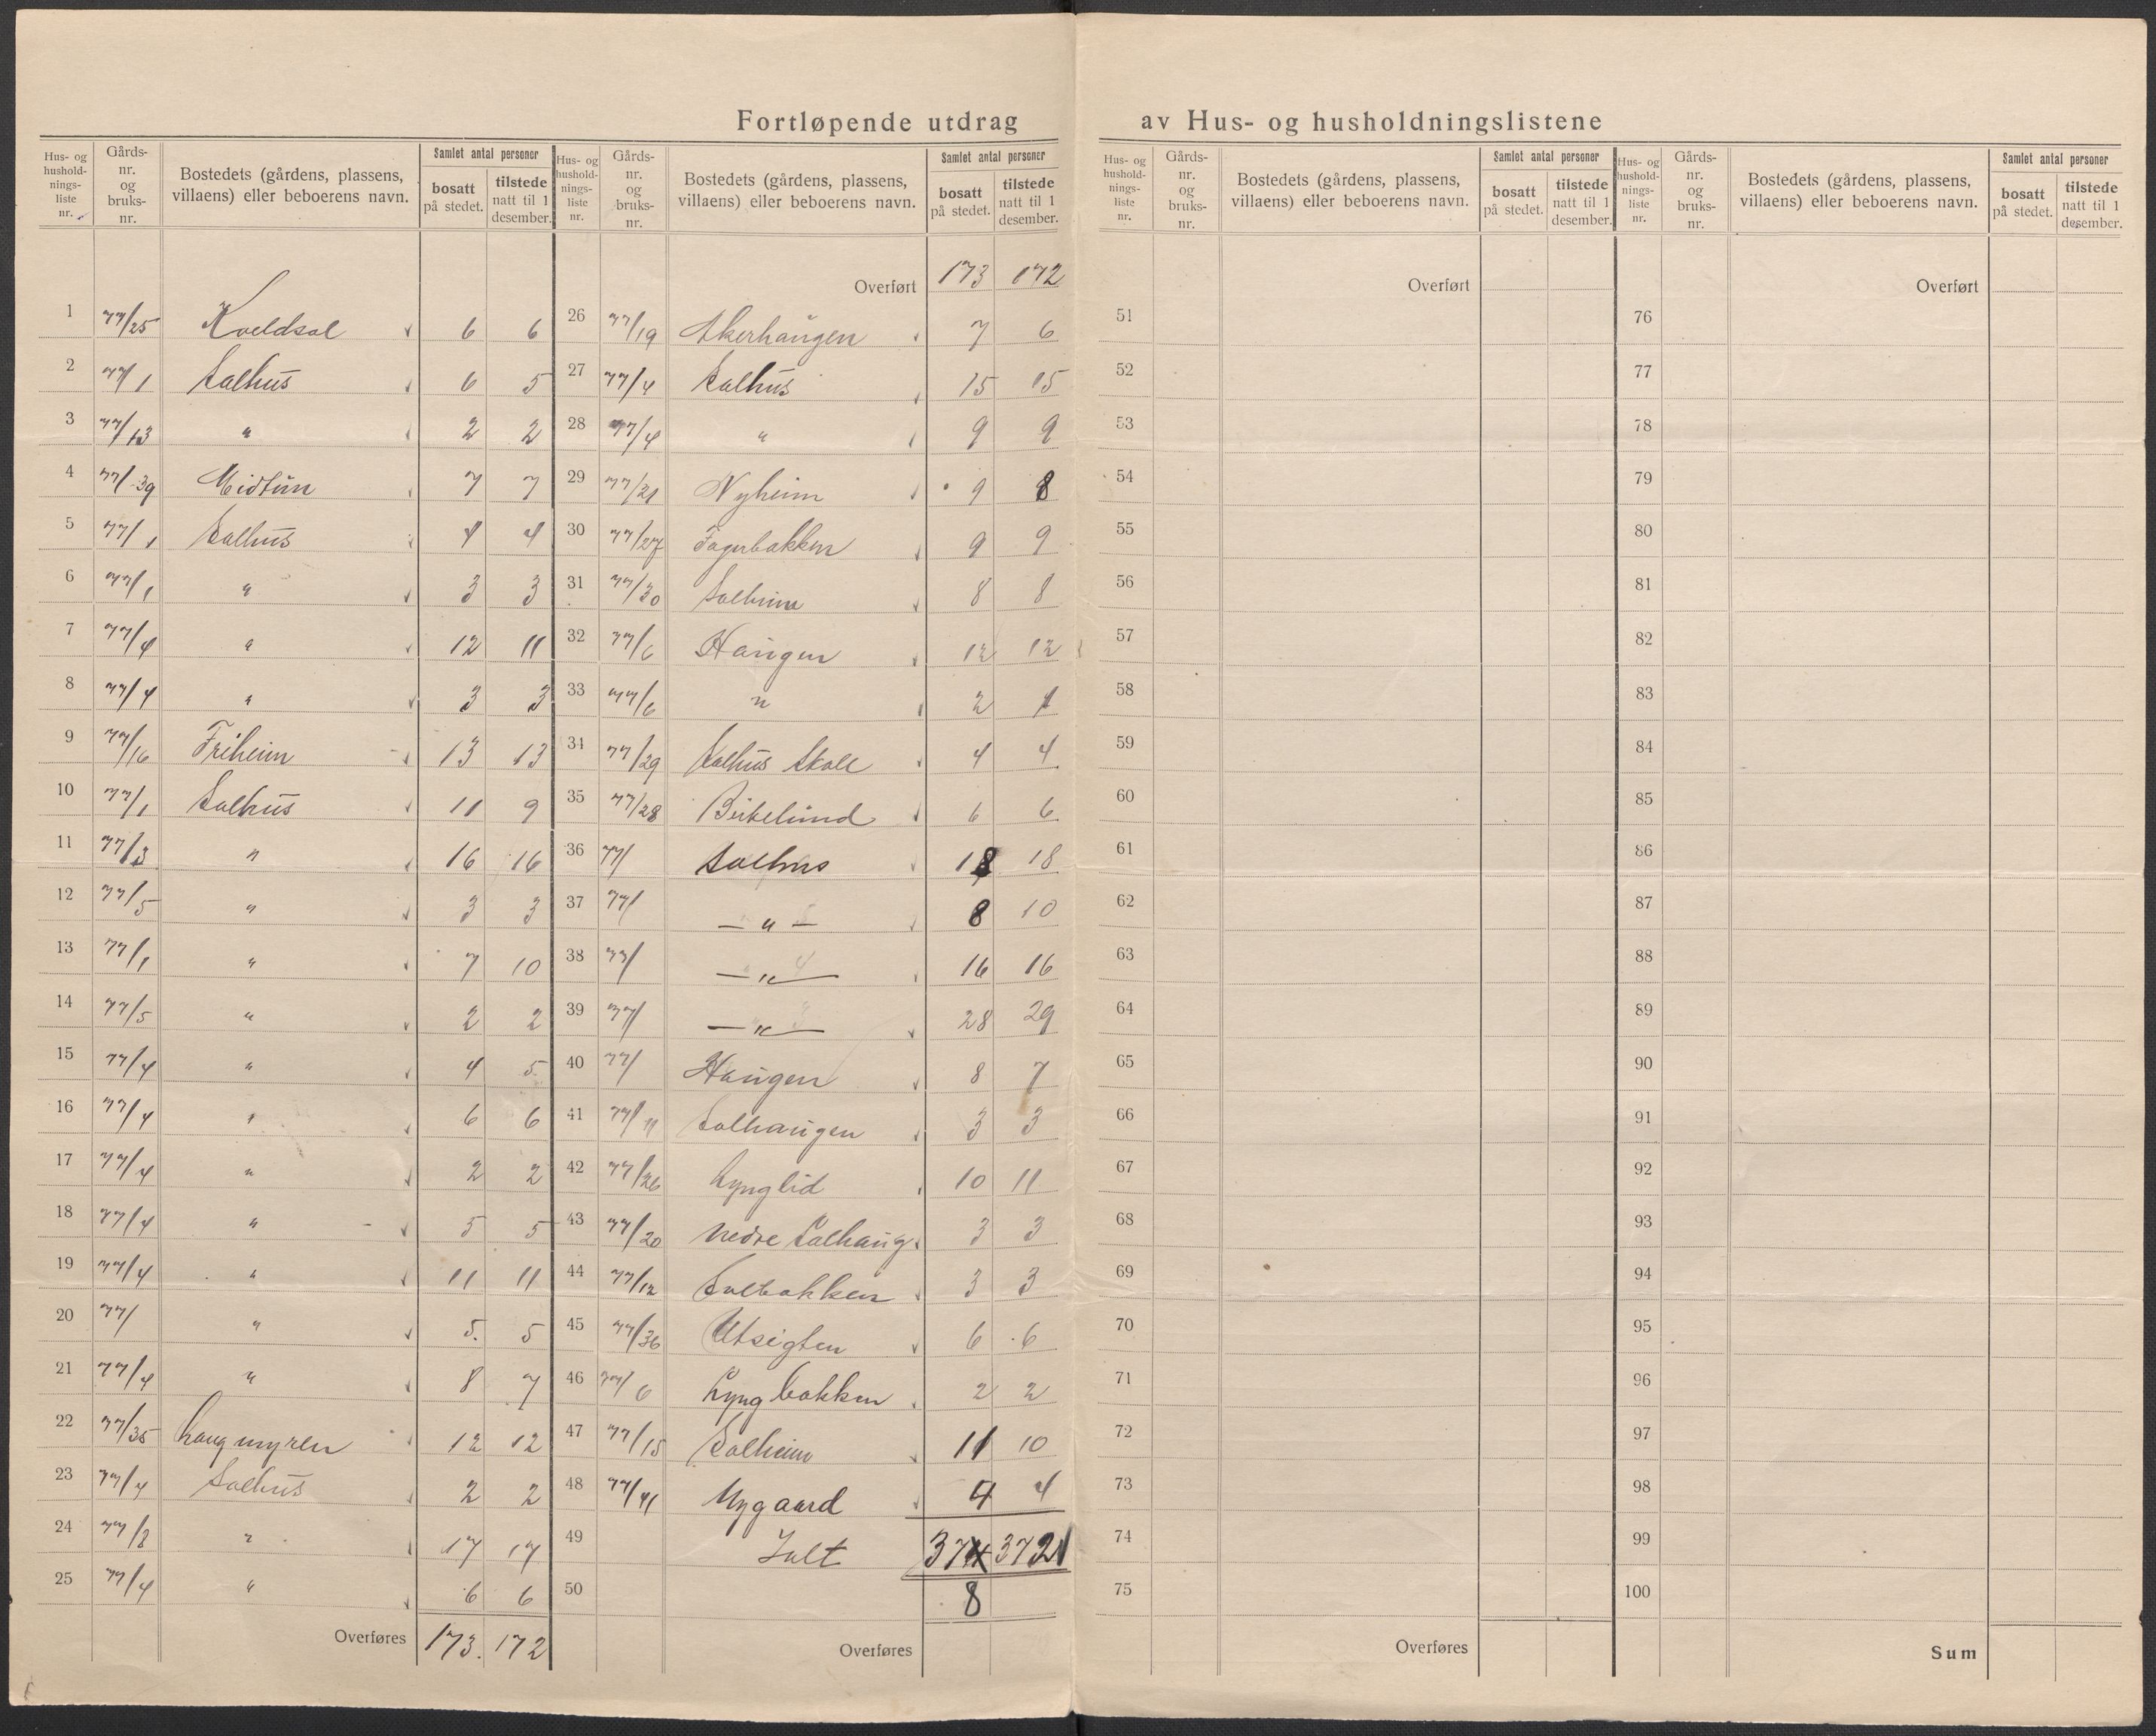 Fortløpende utdrag av Hus- og husholdningslistene
Hus- og husholdnings-liste nr. | Gårds-nr. og bruks-nr. | Bostedets (gårdens, plassens, villaens) eller beboerens navn. | Samlet antal personer | bosatt på stedet. | tilstede natt til 1 desember.
1 77/25 Kveldsol 6 6
2 77/1 Salhus 6 5
3 77/13 " 2 2
4 77/39 Midtun 7 7
5 77/1 Salhus 4 4
6 77/1 " 3 3
7 77/4 " 12 11
8 77/4 " 3 3
9 77/16 Friheim 13 13
10 77/1 Salhus 11 9
11 77/3 " 16 16
12 77/5 " 3 3
13 77/1 " 7 10
14 77/5 " 2 2
15 77/4 " 4 5
16 77/4 " 6 6
17 77/4 " 2 2
18 77/4 " 5 5
19 77/4 " 11 11
20 77/ " 5 5
21 77/4 " 8 7
22 77/35 Langmyren 12 12
23 77/4 Salhus 2 2
24 77/8 " 17 17
25 77/4 " 6 6
Overføres 173. 172
Hus- og husholdnings-liste nr. | Gårds-nr. og bruks-nr. | Bostedets (gårdens, plassens, villaens) eller beboerens navn. | Samlet antal personer | bosatt på stedet. | tilstede natt til 1 desember.
Overført 173 172
26 77/19 Akerhaugen 7 6
27 77/4 Salhus 15 15
28 77/4 " 9 9
29 77/21 Nyheim 9 8
30 77/27 Fagerbakken 9 9
31 77/30 Solheim 8 8
32 77/6 Haugen 12 12
33 77/6 " 2 1
34 77/29 Salhus Skole 4 4
35 77/28 Birkelund 6 6
36 77/ Salhus 18 18
37 77/ — " — 8 10
38 77/ — " — 16 16
39 77/ — " — 28 29
40 77/ Haugen 8 7
41 77/11 Solhaugen 3 3
42 77/26 Lynglid 10 11
43 77/20 Nedre Solhaug 3 3
44 77/12 Solbakken 3 3
45 77/36 Utsigten 6 6
46 77/6 Lyngbakken 2 2
47 77/15 Solheim 11 10
48 77/41 Nygaard 4 4
49 Ialt 374 372
50 8
Overføres
Hus- og husholdnings-liste nr. | Gårds-nr. og bruks-nr. | Bostedets (gårdens, plassens, villaens) eller beboerens navn. | Samlet antal personer | bosatt på stedet. | tilstede natt til 1 desember.
Overført
51
52
53
54
55
56
57
58
59
60
61
62
63
64
65
66
67
68
69
70
71
72
73
74
75
Overføres
Hus- og husholdnings-liste nr. | Gårds-nr. og bruks-nr. | Bostedets (gårdens, plassens, villaens) eller beboerens navn. | Samlet antal personer | bosatt på stedet. | tilstede natt til 1 desember.
Overført
76
77
78
79
80
81
82
83
84
85
86
87
88
89
90
91
92
93
94
95
96
97
98
99
100
Sum